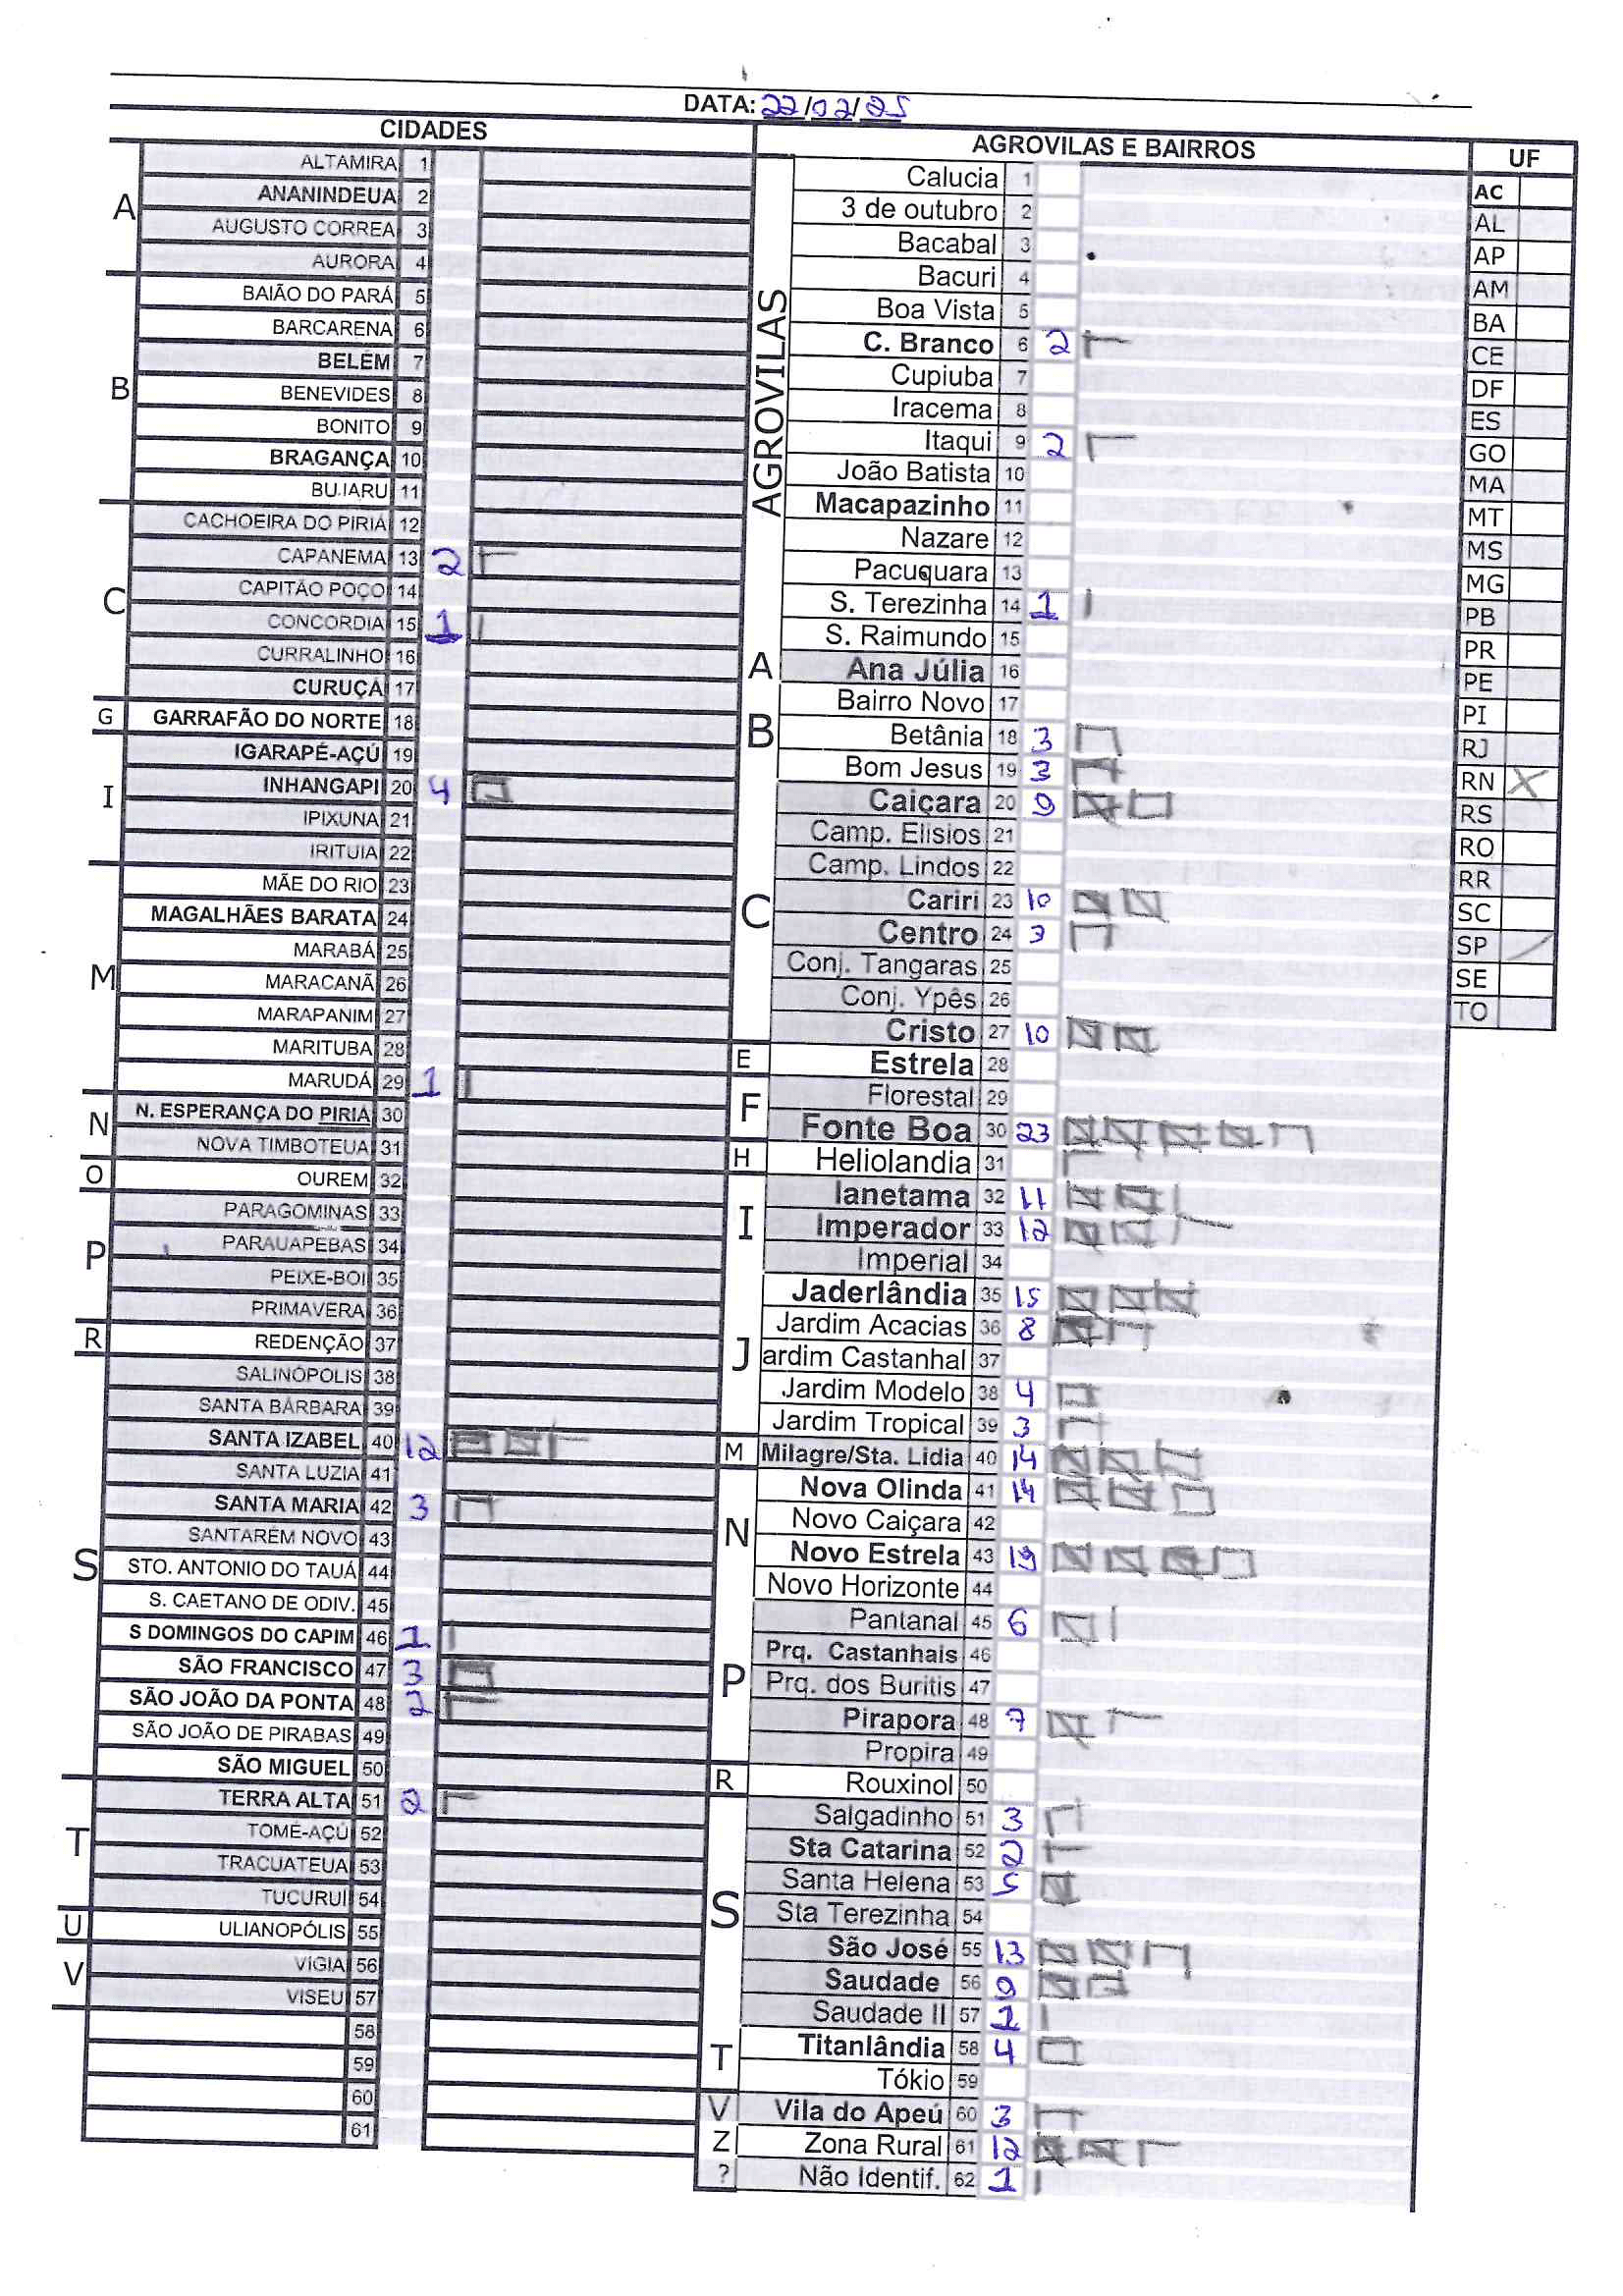 DATA: 22/02/25
CIDADES
A
ALTAMIRA 1
ANANINDEUA 2
AUGUSTO CORREA 3
AURORA 4
B
BAIÃO DO PARÁ 5
BARCARENA 6
BELÉM 7
BENEVIDES 8
BONITO 9
BRAGANÇA 10
BUJARU 11
C
CACHOEIRA DO PIRIÁ 12
CAPANEMA 13 2
CAPITÃO POÇO 14
CONCORDIA 15 1
CURRALINHO 16
CURUÇÁ 17
G
GARRAFÃO DO NORTE 18
I
IGARAPÉ-AÇÚ 19
INHANGAPI 20 4
IPIXUNA 21
IRITUIA 22
M
MÃE DO RIO 23
MAGALHÃES BARATA 24
MARABÁ 25
MARACANÃ 26
MARAPANIM 27
MARITUBA 28
MARUDÁ 29 1
N
N. ESPERANÇA DO PIRIA 30
NOVA TIMBOTEUA 31
O
OUREM 32
P
PARAGOMINAS 33
PARAUAPEBAS 34
PEIXE-BOI 35
PRIMAVERA 36
R
REDENÇÃO 37
S
SALINÓPOLIS 38
SANTA BÁRBARA 39
SANTA IZABEL 40 12
SANTA LUZIA 41
SANTA MARIA 42 3
SANTARÉM NOVO 43
STO. ANTONIO DO TAUÁ 44
S. CAETANO DE ODIV. 45
S DOMINGOS DO CAPIM 46 1
SÃO FRANCISCO 47 3
SÃO JOÃO DA PONTA 48 2
SÃO JOÃO DE PIRABAS 49
SÃO MIGUEL 50
T
TERRA ALTA 51 2
TOMÉ-AÇÚ 52
TRACUATEUA 53
TUCURUÍ 54
U
ULIANOPÓLIS 55
V
VIGIA 56
VISEU 57
58
59
60
61
AGROVILAS E BAIRROS
AGROVILAS
Calucia 1
3 de outubro 2
Bacabal 3
Bacuri 4
Boa Vista 5
C. Branco 6 2
Cupiuba 7
Iracema 8
Itaqui 9 2
João Batista 10
Macapazinho 11
Nazare 12
Pacuquara 13
S. Terezinha 14 1
S. Raimundo 15
A
Ana Júlia 16
B
Bairro Novo 17
Betânia 18 3
Bom Jesus 19 3
C
Caiçara 20 9
Camp. Elisios 21
Camp. Lindos 22
Cariri 23 10
Centro 24 3
Conj. Tangaras 25
Conj. Ypês 26
Cristo 27 10
E
Estrela 28
F
Florestal 29
Fonte Boa 30 23
H
Heliolandia 31
I
Ianetama 32 11
Imperador 33 12
Imperial 34
J
Jaderlândia 35 15
Jardim Acacias 36 8
ardim Castanhal 37
Jardim Modelo 38 4
Jardim Tropical 39 3
M
Milagre/Sta. Lidia 40 14
N
Nova Olinda 41 14
Novo Caiçara 42
Novo Estrela 43 19
Novo Horizonte 44
P
Pantanal 45 6
Prq. Castanhais 46
Prq. dos Buritis 47
Pirapora 48 7
Propira 49
R
Rouxinol 50
S
Salgadinho 51 3
Sta Catarina 52 2
Santa Helena 53 5
Sta Terezinha 54
São José 55 13
Saudade 56 9
Saudade II 57 1
T
Titanlândia 58 4
Tókio 59
V
Vila do Apeú 60 3
Z
Zona Rural 61 12
?
Não Identif. 62 1
UF
AC
AL
AP
AM
BA
CE
DF
ES
GO
MA
MT
MS
MG
PB
PR
PE
PI
RJ
RN X
RS
RO
RR
SC
SP /
SE
TO